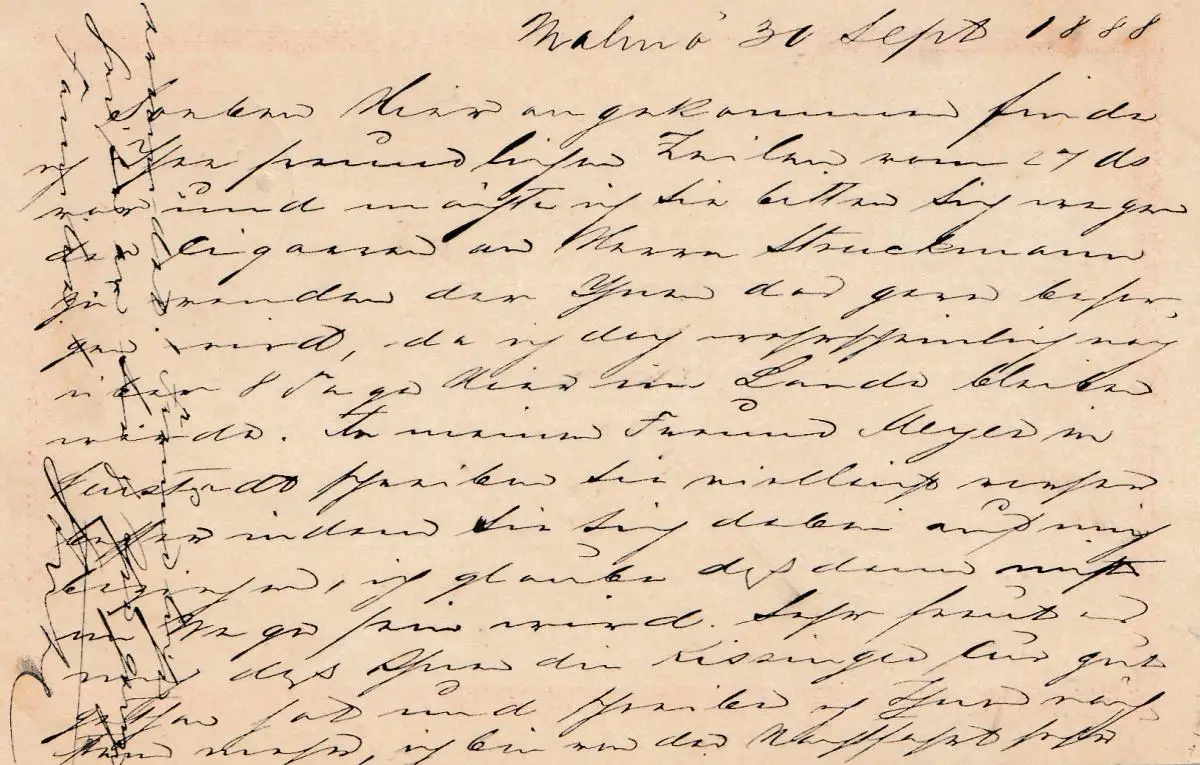 Malmö 30 Sept 1888
Soeben Hier angekommen finde
ich Ihre freundlichen Zeilen vom 27 ds
vor und möchte ich Sie bitten Sich wegen
der Cigarren an Herrn Struckmann
zu wenden der Ihnen das gern besor
gen wird, da ich doch wahrscheinlich noch
über 8 Tage Hier im Lande bleiben
werde. An meinen Freund Meyer in
Neustadt schreiben Sie vielleicht
besser indem Sie Sich dabei auf mich
beziehen, ich glaube daß dann nichts
im Wege sein wird. Sehr freut es
mich daß Ihnen die Kissinger Cur gut
gethan hat und schreibe ich Ihnen näch
stens mehr, ich bin von der sehr